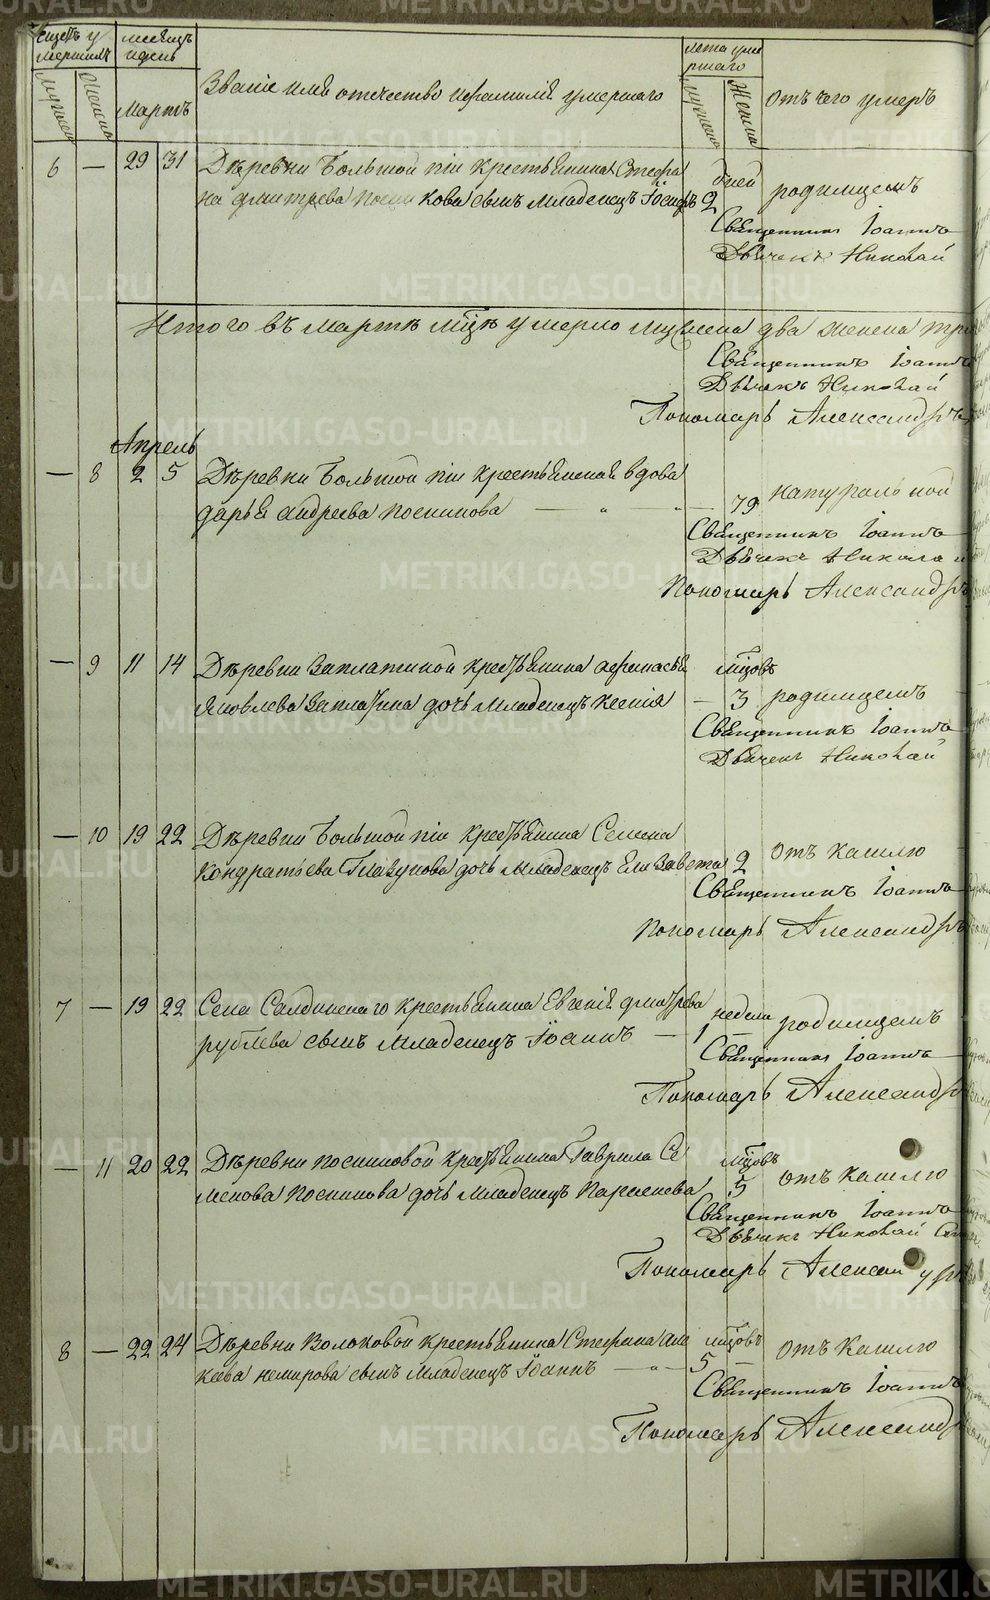 Счетъ умершихъ
мужеска
женска
месяцъ и день
Мартъ
Званіе имя отечество и фамилія умершаго
лета умершаго
мужеска
Женска
отъ чего умеръ
6 — 29 31 Деревни Большой піи крестьянина Стефа дней родимцемъ
на дмитрева посникова сынъ младенецъ Іосифъ 2
Священникъ Іоаннъ
Дьячекъ Николай
Итого въ мартѣ мцѣ умерло мужеска два женска три
Священникъ Іоаннъ
Дьячекъ Николай
Пономарь Александръ
Апрель
— 8 2 5 Деревни Большой піи крестьянская вдова
дарья андреева посникова — 79 натуральной
Священникъ Іоаннъ
Дьячекъ Николай
Пономарь Александръ
— 9 11 14 Деревни Заплатиной крестьянина афанасья мцовъ
Яковлева Заплатина дочь младенецъ Ксенія — 3 родимцемъ
Священникъ Іоаннъ
Дьячекъ Николай
— 10 19 22 Деревни Большой піи крестьянина Семена
кондратьева Глазунова дочь младенецъ Елизавета 2 отъ кашлю
Священникъ Іоаннъ
Пономарь Александръ
7 — 19 22 Села Салдинскаго крестьянина Евгенія дмитрева неделя родимцемъ
рублева сынъ младенецъ Іоаннъ — 1 —
Священникъ Іоаннъ
Пономарь Александръ
— 11 20 22 Деревни посниковой крестьянина Гаврила Се мцовъ отъ кашлю
менова посникова дочь младенецъ Параскева 5
Священникъ Іоаннъ
Дьячекъ Николай
Пономарь
8 — 22 24 Деревни Волоковой крестьянина Стефана але мцовъ отъ кашлю
кеева немирова сынъ младенецъ Іоаннъ — 5 —
Священникъ Іоаннъ
Пономарь Александръ
METRIKI.GASO-URAL.RU